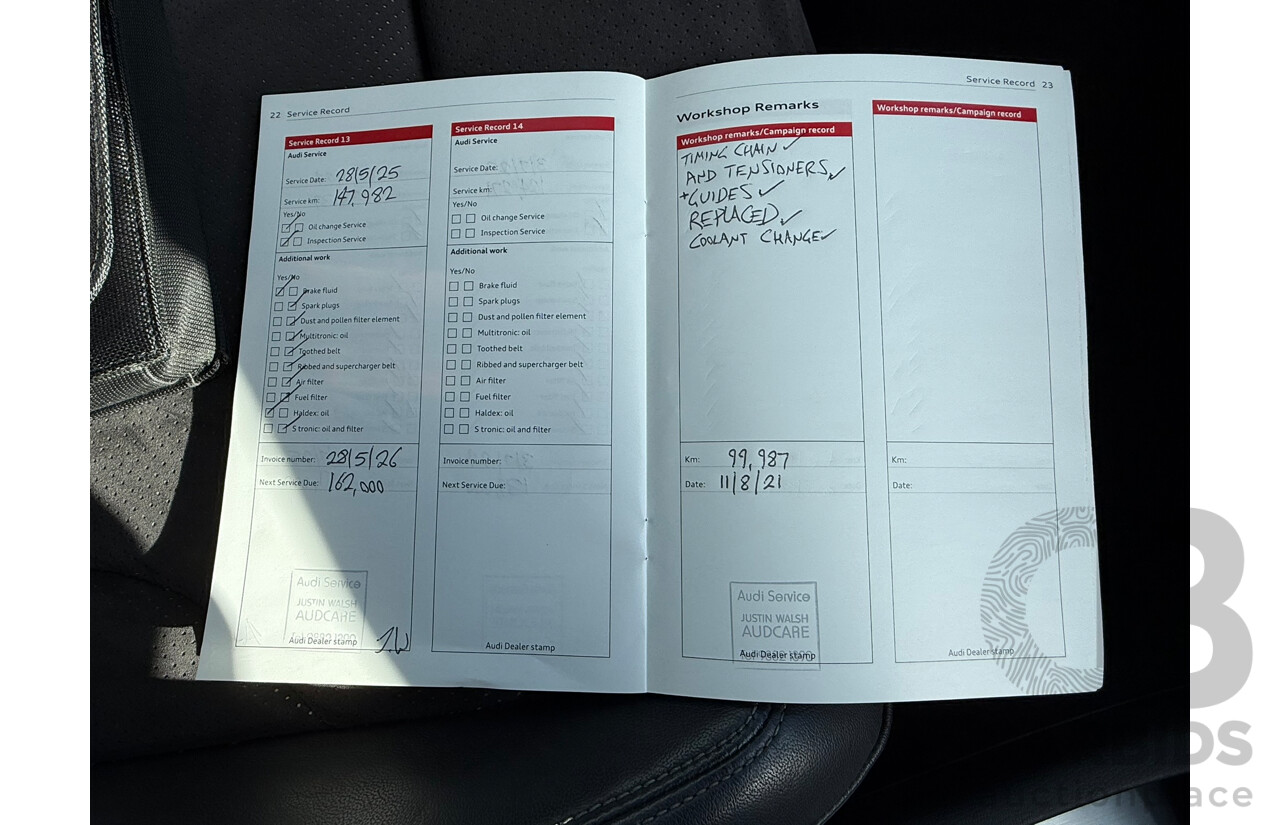 22 Service Record
Service Record 13
Audi Service
Service Date: 28/5/25
Service km: 147,982
Yes/No
Oil change Service
Inspection Service
Additional work
Yes/No
Brake fluid
Spark plugs
Dust and pollen filter element
Multitronic: oil
Toothed belt
Ribbed and supercharger belt
Air filter
Fuel filter
Haldex: oil
S tronic: oil and filter
Invoice number: 28/5/26
Next Service Due: 162,000
Audi Service
JUSTIN WALSH
AUDCARE
Audi Dealer stamp
JW
Service Record 14
Audi Service
Service Date:
Service km:
Yes/No
Oil change Service
Inspection Service
Additional work
Yes/No
Brake fluid
Spark plugs
Dust and pollen filter element
Multitronic: oil
Toothed belt
Ribbed and supercharger belt
Air filter
Fuel filter
Haldex: oil
S tronic: oil and filter
Invoice number:
Next Service Due:
Audi Dealer stamp
Service Record 23
Workshop Remarks
Workshop remarks/Campaign record
TIMING CHAIN ✓
AND TENSIONERS ✓
+GUIDES ✓
REPLACED ✓
COOLANT CHANGE ✓
Km: 99,987
Date: 11/8/21
Audi Service
JUSTIN WALSH
AUDCARE
Audi Dealer stamp
Workshop remarks/Campaign record
Km:
Date:
Audi Dealer stamp